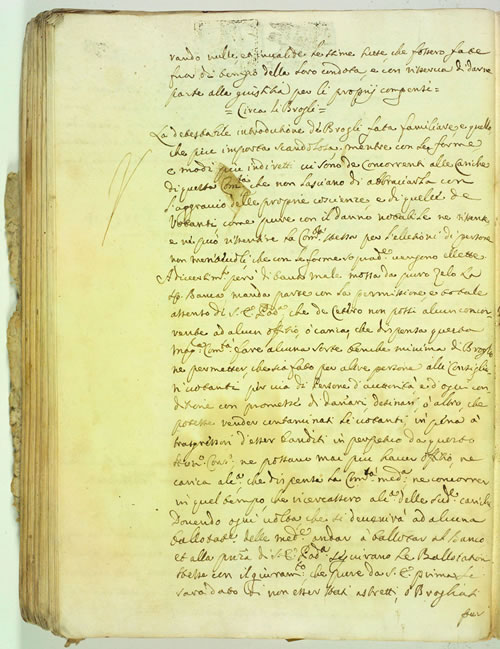 rando nulle, et invalide le stime stesse, che fossero fatte
fuor di tempo della loro condota, e con riserva di darne
parte alla giustitia per li proprij compensi =
= Circa li Brogli =
La detestabile introdutione de Brogli fatta familiare, e quello
che più importa scandolosa, mentre con le forme
e modi più indiretti vi sono de Concorrenti alle Cariche
di questa Com.tà che non lasciano di abbracciarla con
l'aggravio delle proprie conscienze, e di quelle de
Votanti come pure con il danno notabile ne risente,
e ne può risentire la Com.tà stessa per l'elettioni di persone
non meritevoli che con le forme sud.e vengono elette
A divertim.to però di tanto male mossa da puro zelo la
Sp. Banca manda parte con la permissione, e totale
assenso di S. E. Pod.a che de cetero non possi alcun concor-
rente ad alcun offitio, ò carica, che dispensa questa
Mag.ca Com.tà fare alcuna sorte benche minima di Broglio
ne permetter che sia fatto per altre persone alle Consiglieri
votanti per via di Persone d'autorità ad ogni con-
ditione con promesse di danari, desinari, ò altro, che
potesse render contaminati le votanti, in pena à
trasgressori d'esser banditi in perpetuo da questo
Cons.o ne possano mai più haver offitio, ne
carica alc.a che dispensa la Com.tà med.a ne concorrer
in quel tempo che ricercassero alc.a delle sud.e cariche
Dovendo ogni volta che si devenirà ad alcuna
ballotat.e delle med.e andar à ballotar al Banco
et alla prez.a di S. E. Pod.a li Ballotatori
stesse con il giuram.to che pure da S. E. prima le
sarà dato di non esser stati astretti, ò Brogliati
per